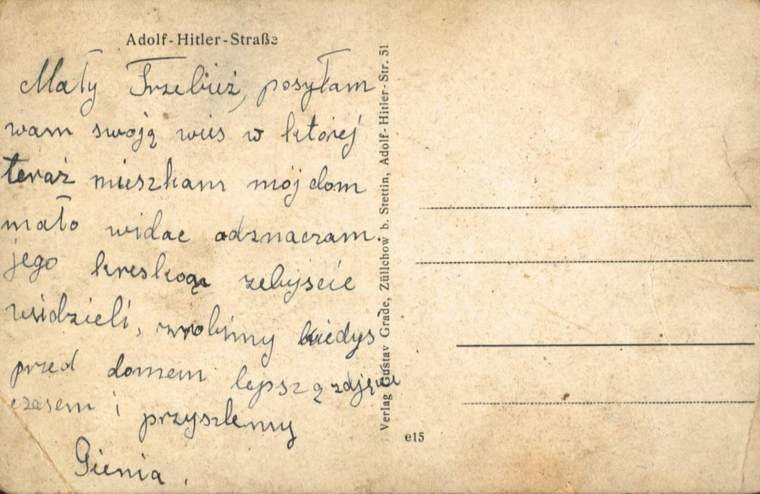 Adolf-Hitler-Straße
Mały Trzebież, posyłam
wam swoją wiis w której
teraż mieszkam mój dom
mało widac odznaczam
jego kreskoą zebyscie
widzieli, zrobimy kiedys
przed domem lepszą zdjęcie
czasem i przyszlemy
Gienia.
Verlag Gustav Grade, Züllchow b. Stettin, Adolf-Hitler-Str. 51
e15